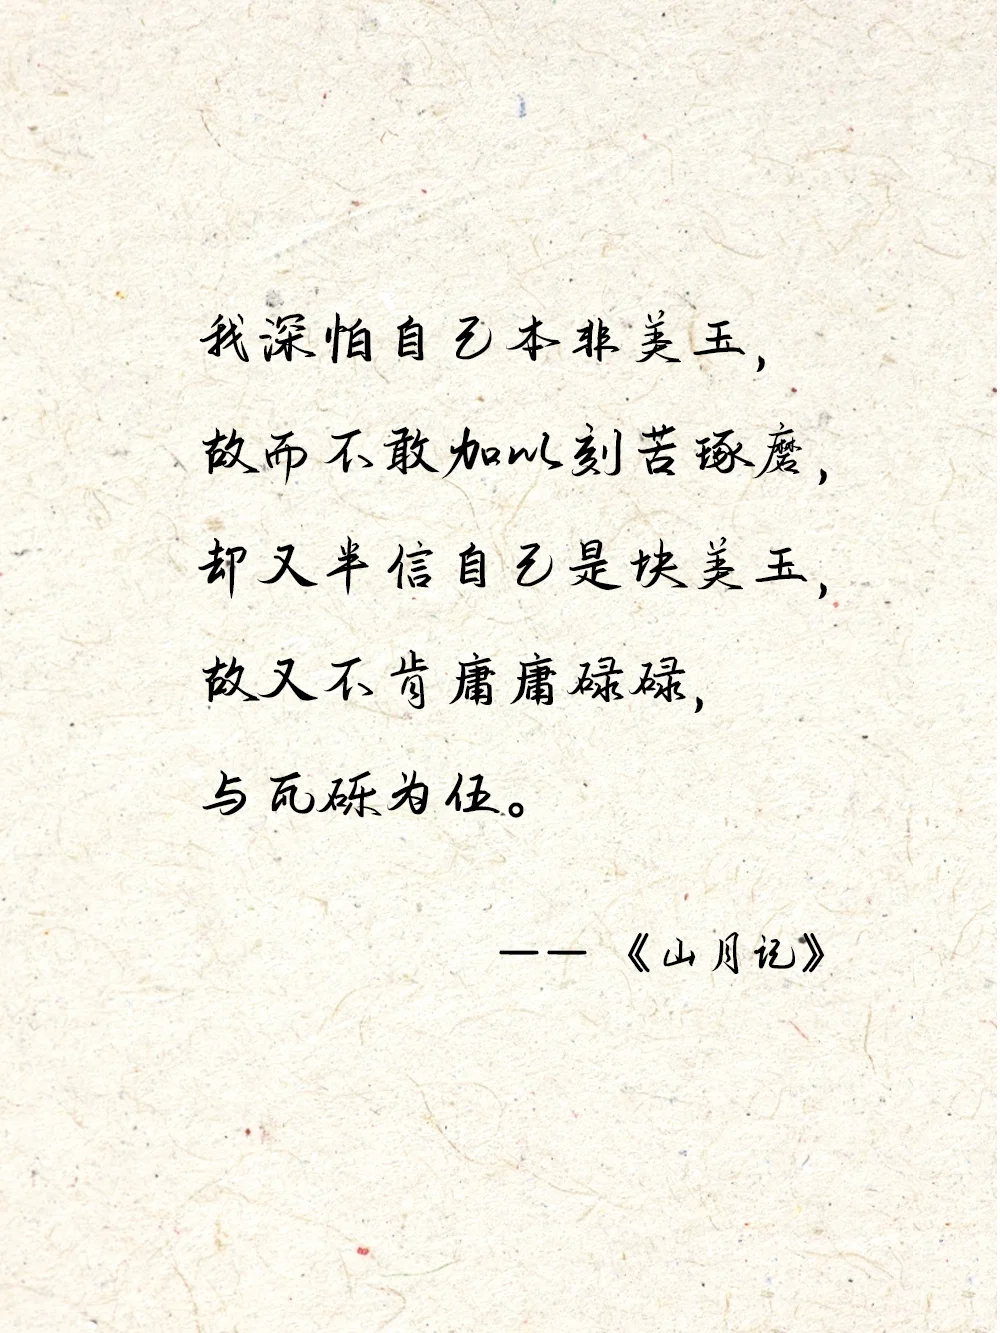 我深怕自己本非美玉，
故而不敢加以刻苦琢磨，
却又半信自己是块美玉，
故又不肯庸庸碌碌，
与瓦砾为伍。
——《山月记》